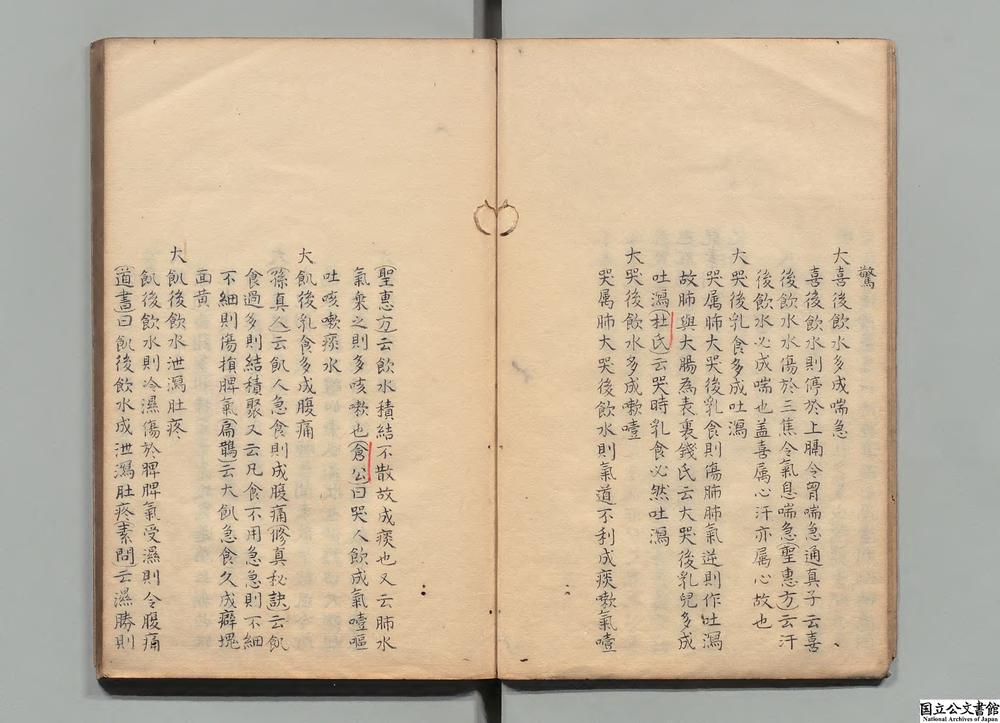 驚
大喜後飲水多成喘急
喜後飲水則停於上膈令胃喘急通真子云喜
後飲水水傷於三焦令氣息喘急聖惠方云汗
後飲水必成喘也盖喜属心汗亦属心故也
大哭後乳食多成吐瀉
哭属肺大哭後乳食則傷肺肺氣逆則作吐瀉
故肺與大腸為表裏錢氏云大哭後乳兒多成
吐瀉杜氏云哭時乳食必然吐瀉
大哭後飲水多成嗽噎
哭属肺大哭後飲水則氣道不利成痰嗽氣噎
聖惠方云飲水積結不散故成痰也又云肺水
氣乗之則多咳嗽也倉公曰哭人飲成氣噎嘔
吐咳嗽痰水
大飢後乳食多成腹痛
孫真人云飢人急食則成腹痛修真秘訣云飢
食過多則結積聚又云凡食不用急急則不細
不細則傷損脾氣扁鵲云大飢急食久成癖塊
面黄
大飢後飲水泄瀉肚疼
飢後飲水則冷濕傷於脾脾氣受濕則令腹痛
道書曰飢後飲水成泄瀉肚疼素問云濕勝則
国立公文書館
National Archives of Japan